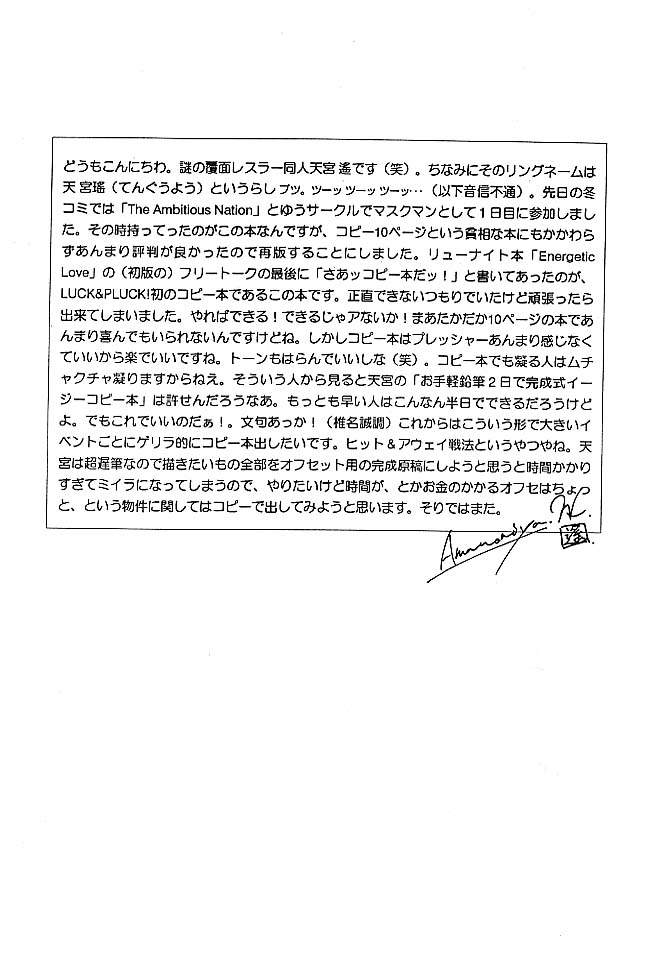 どうもこんにちわ。謎の覆面レスラー同人天宮 遙です（笑）。ちなみにそのリングネームは
天宮瑤（てんぐうよう）というらし ブツ。ツーッ ツーッ ツーッ…（以下音信不通）。先日の冬
コミでは「The Ambitious Nation」とゆうサークルでマスクマンとして１日目に参加しまし
た。その時持ってったのがこの本なんですが、コピー10ページという貧相な本にもかかわら
ずあんまり評判が良かったので再版することにしました。リューナイト本「Energetic
Love」の（初版の）フリートークの最後に「さあッコピー本だッ！」と書いてあったのが、
LUCK&PLUCK!初のコピー本であるこの本です。正直できないつもりでいたけど頑張ったら
出来てしまいました。やればできる！できるじゃアないか！まあたかだか10ページの本であ
んまり喜んでもいられないんですけどね。しかしコピー本はプレッシャーあんまり感じなく
ていいから楽でいいですね。トーンもはらんでいいしな（笑）。コピー本でも凝る人はムチ
ャクチャ凝りますからねえ。そういう人から見ると天宮の「お手軽鉛筆２日で完成式イー
ジーコピー本」は許せんだろうなあ。もっとも早い人はこんなん半日でできるだろうけど
よ。でもこれでいいのだぁ！。文句あっか！（椎名誠調）これからはこういう形で大きいイ
ベントごとにゲリラ的にコピー本出したいです。ヒット＆アウェイ戦法というやつやね。天
宮は超遅筆なので描きたいもの全部をオフセット用の完成原稿にしようと思うと時間かかり
すぎてミイラになってしまうので、やりたいけど時間が、とかお金のかかるオフセはちょっ
と、という物件に関してはコピーで出してみようと思います。そりではまた。